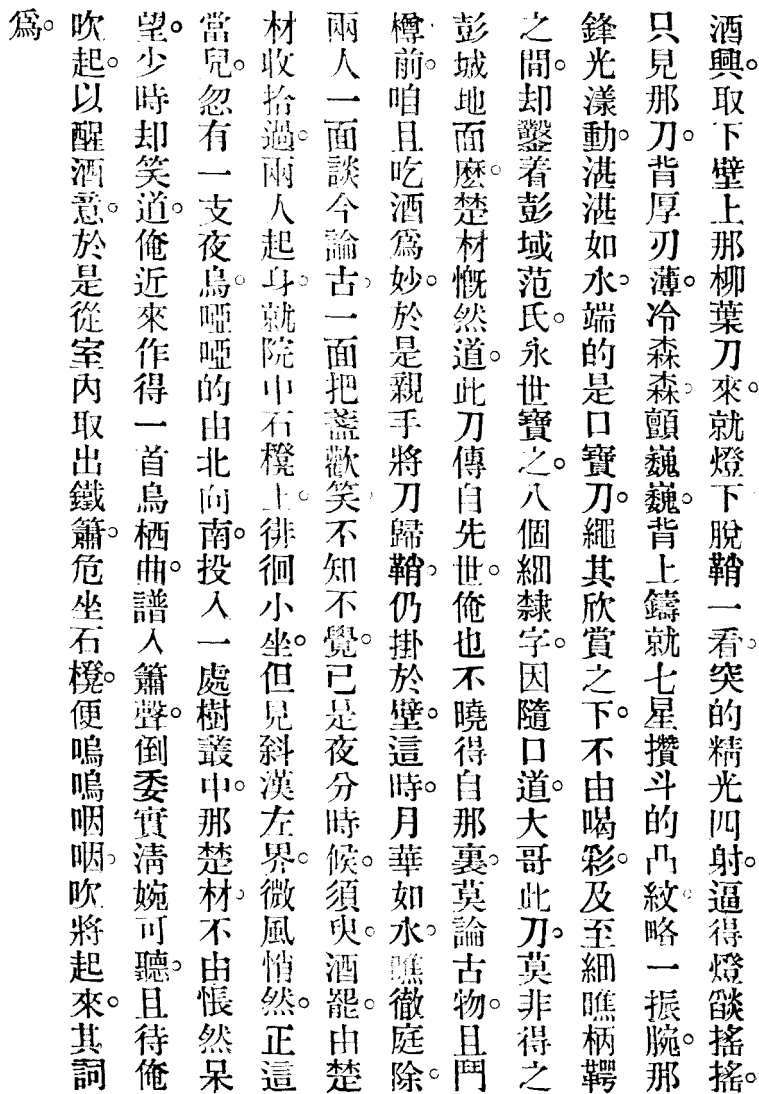 酒興。取下壁上那柳葉刀來。就燈下脫鞘一看。突的精光四射。逼得燈燄搖搖。
只見那刀。背厚刃薄。冷森森。顫巍巍。背上鑄就七星攢斗的凸紋。略一振腕。那
鋒光漾動。湛湛如水。端的是口寶刀。繩其欣賞之下。不由喝彩。及至細瞧柄鞘
之間。却鑿着彭域范氏。永世寶之。八個細隸字。因隨口道。大哥此刀。莫非得之
彭城地面麽。楚材慨然道。此刀傳自先世。俺也不曉得自那裏。莫論古物。且鬥
樽前。咱且吃酒爲妙。於是親手將刀歸鞘。仍掛於壁。這時。月華如水。瞧徹庭除。
兩人一面談今論古。一面把盞歡笑。不知不覺。已是夜分時候。須臾。酒罷。由楚
材收拾過。兩人起身。就院中石櫈上。徘徊小坐。但見斜漢左界。微風悄然。正這
當兒。忽有一支夜鳥。啞啞的由北向南。投入一處樹叢中。那楚材。不由悵然呆
望。少時却笑道。俺近來作得一首鳥栖曲。譜入簫聲。倒委實淸婉可聽。且待俺
吹起。以醒酒意。於是從室內取出鐵簫。危坐石櫈。便嗚嗚咽咽。吹將起來。其詞
爲。